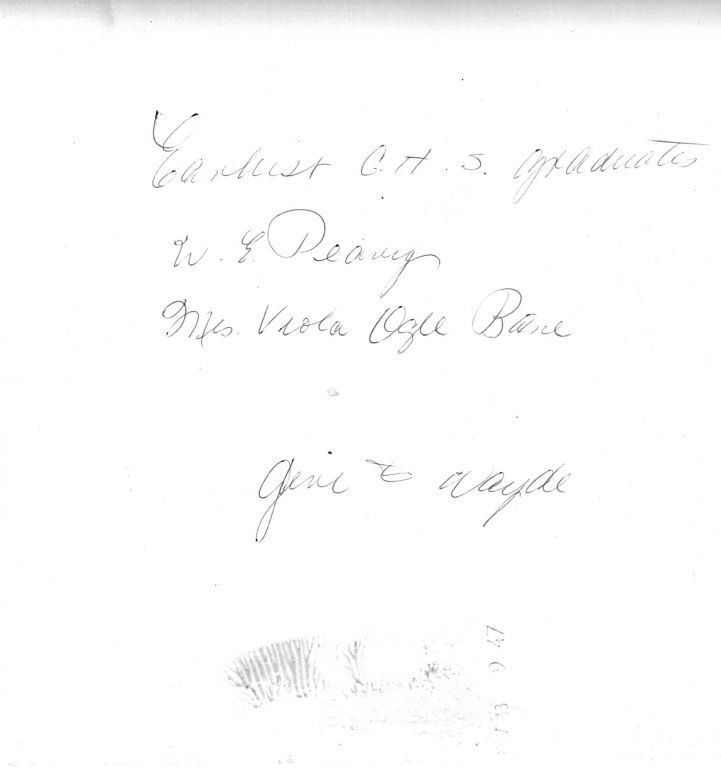 Earliest C. H. S. graduates
W. E. Peavy
Mrs. Viola Ogle Bane
Gene & Wayde
9 47